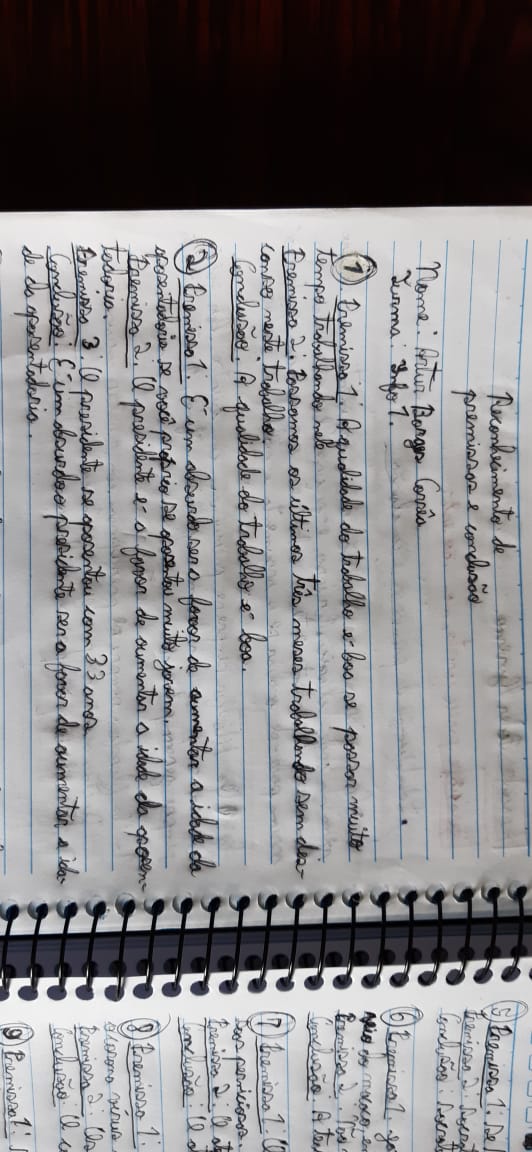 Reconhecimento de
premissas e conclusão
Nome: Artur Borges Corrêa
Turma: Info 1.
① Premissa 1: A qualidade do trabalho é boa se passar muito
tempo trabalhando nele
Premissa 2: Passamos os últimos três meses trabalhando sem des-
canso neste trabalho.
Conclusão: A qualidade do trabalho é boa.
② Premissa 1: É um absurdo ser a favor de aumentar a idade da
aposentadoria se você próprio se aposentou muito jovem
Premissa 2: O presidente é a favor de aumentar a idade da aposen-
tadoria.
Premissa 3: O presidente se aposentou com 33 anos
Conclusão: É um absurdo o presidente ser a favor de aumentar a ida-
de da aposentadoria.
⑤ Premissa 1: Se
Premissa 2:
Conclusão:
⑥ Premissa 1:
Premissa 2:
Conclusão: A
⑦ Premissa 1: O
Premissa 2: O
Conclusão: O
⑧ Premissa 1:
Premissa 2: Os
Conclusão: O
⑨ Premissa 1: